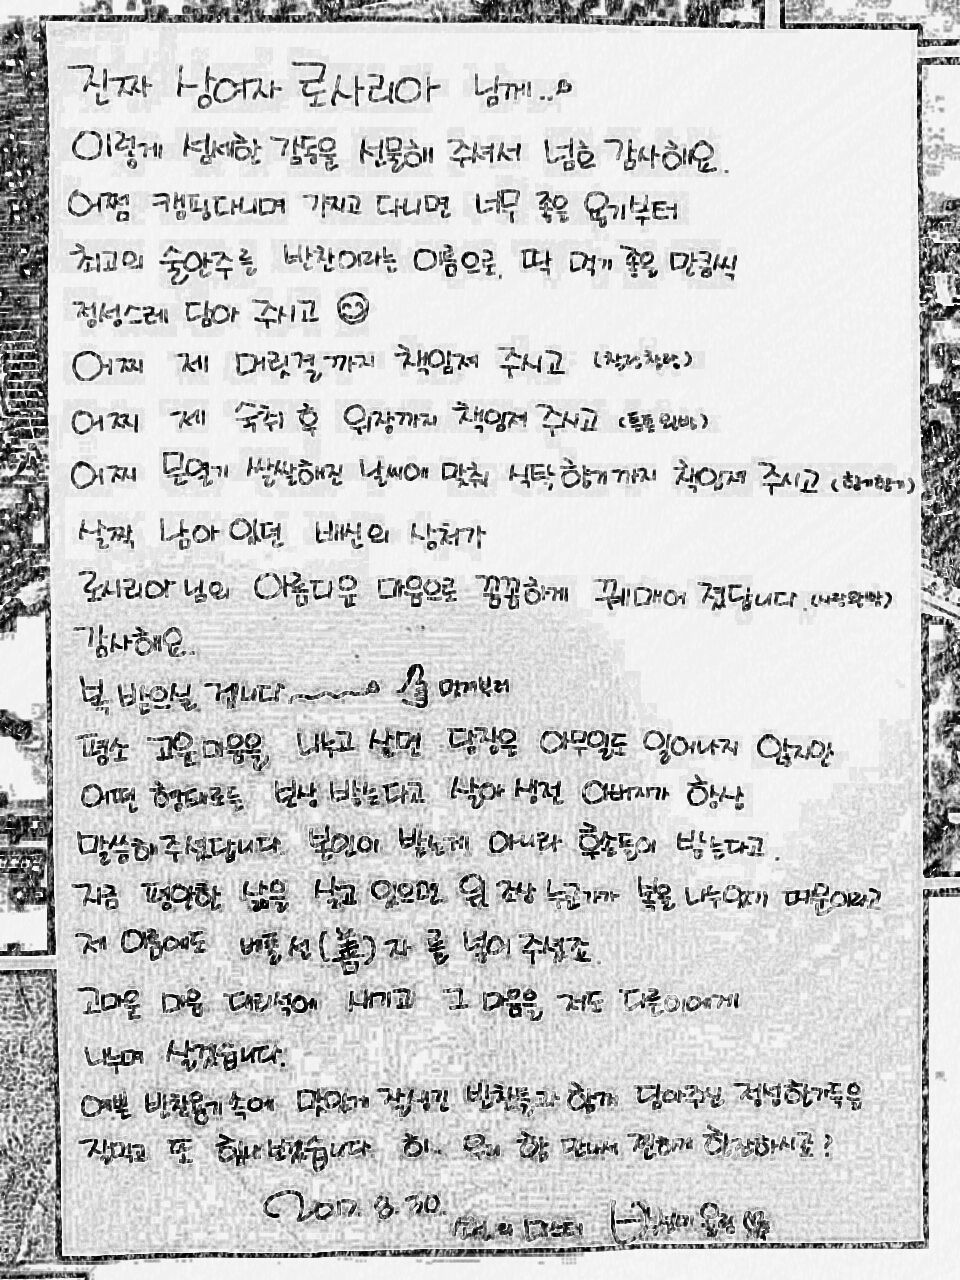 진짜 상여자 로사리아 님께..
이렇게 섬세한 감동을 선물해 주셔서 넘흐 감사해요.
어쩜 캠핑다니며 가지고 다니면 너무 좋은 용기부터
최고의 술안주를 반찬이라는 이름으로, 딱 먹기 좋을 만큼씩
정성스레 담아 주시고
어찌 제 머릿결까지 책임져 주시고 (찰랑찰랑)
어찌 제 숙취 후 위장까지 책임져 주시고
어찌 문열기 쌀쌀해진 날씨에 맞춰 식탁향기까지 책임져 주시고 (향기향기)
살짝 남아 있던 배신의 상처가
로사리아님의 아름다운 마음으로 꼼꼼하게 꿰매어 졌답니다. (사랑왕창)
감사해요..
복 받으실 겝니다
평소 고운마음을, 나누고 살면 당장은 아무일도 일어나지 않지만
어떤 형태로든 보상 받는다고 살아 생전 아버지가 항상
말씀해주셨답니다. 본인이 받는게 아니라 후손들이 받는다고.
지금 평안한 삶을 살고 있으면, 윗 조상 누군가가 복을 나누었기 때문이라고
제 이름에도 베풀 선(善)자 를 넣어 주셨죠.
고마운 마음 대리석에 새기고 그 마음을 저도 다른이에게
나누며 살겠습니다.
예쁜 반찬용기 속에 맛있게 잘생긴 반찬들과 함께 담아주신 정성한가득을
잘먹고 또 힘내보겠습니다. 히.. 우리 함 만나서 찐하게 한잔하시죠?
2017. 8. 30.
마스터